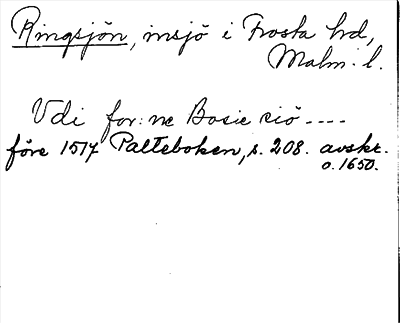 Ringsjön, insjö i Frosta hd,
Malm. l.
Vdi for:ne Bosie siö ----
före 1517 Palteboken, s. 208. avskr.
o. 1650.